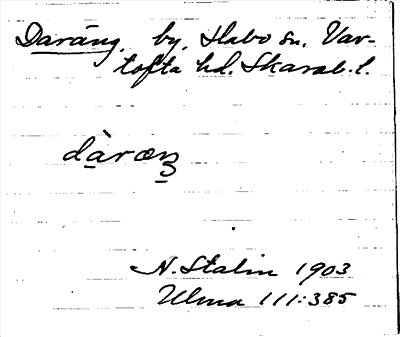 Daräng, by, Habo sn. Var-
tofta hd. Skarab. l.
dà̱ræŋ̱
N. Stalin 1903
Ulma 111:385